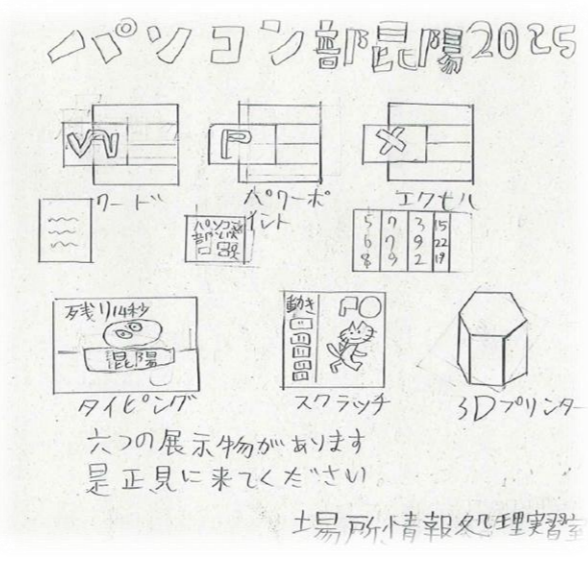 パソコン部昆陽2025
W P X
ワード パワーポイント エクセル
パソコン
5 7 3 15
6 7 9 22
8 9 2 19
残り14秒 動き
混陽
タイピング スクラッチ 3Dプリンター
六つの展示物があります
是正見に来てください
場所情報処理実習室